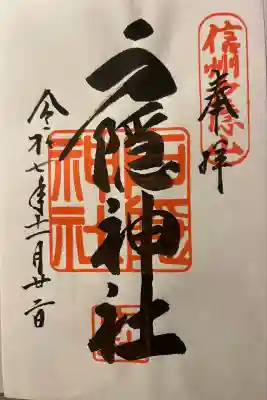 信州戸隠山
奉拝
戸隠神社
戸隠神社
令和七年十一月廿二日